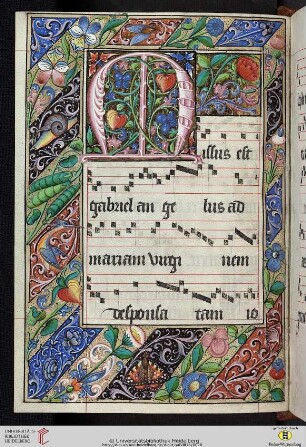 Missus est
gabriel an ge lus ad
mariam virgi nem
desponsa tam io
UNIVERSITÄTS-
BIBLIOTHEK
HEIDELBERG
© Universitätsbibliothek Heidelberg